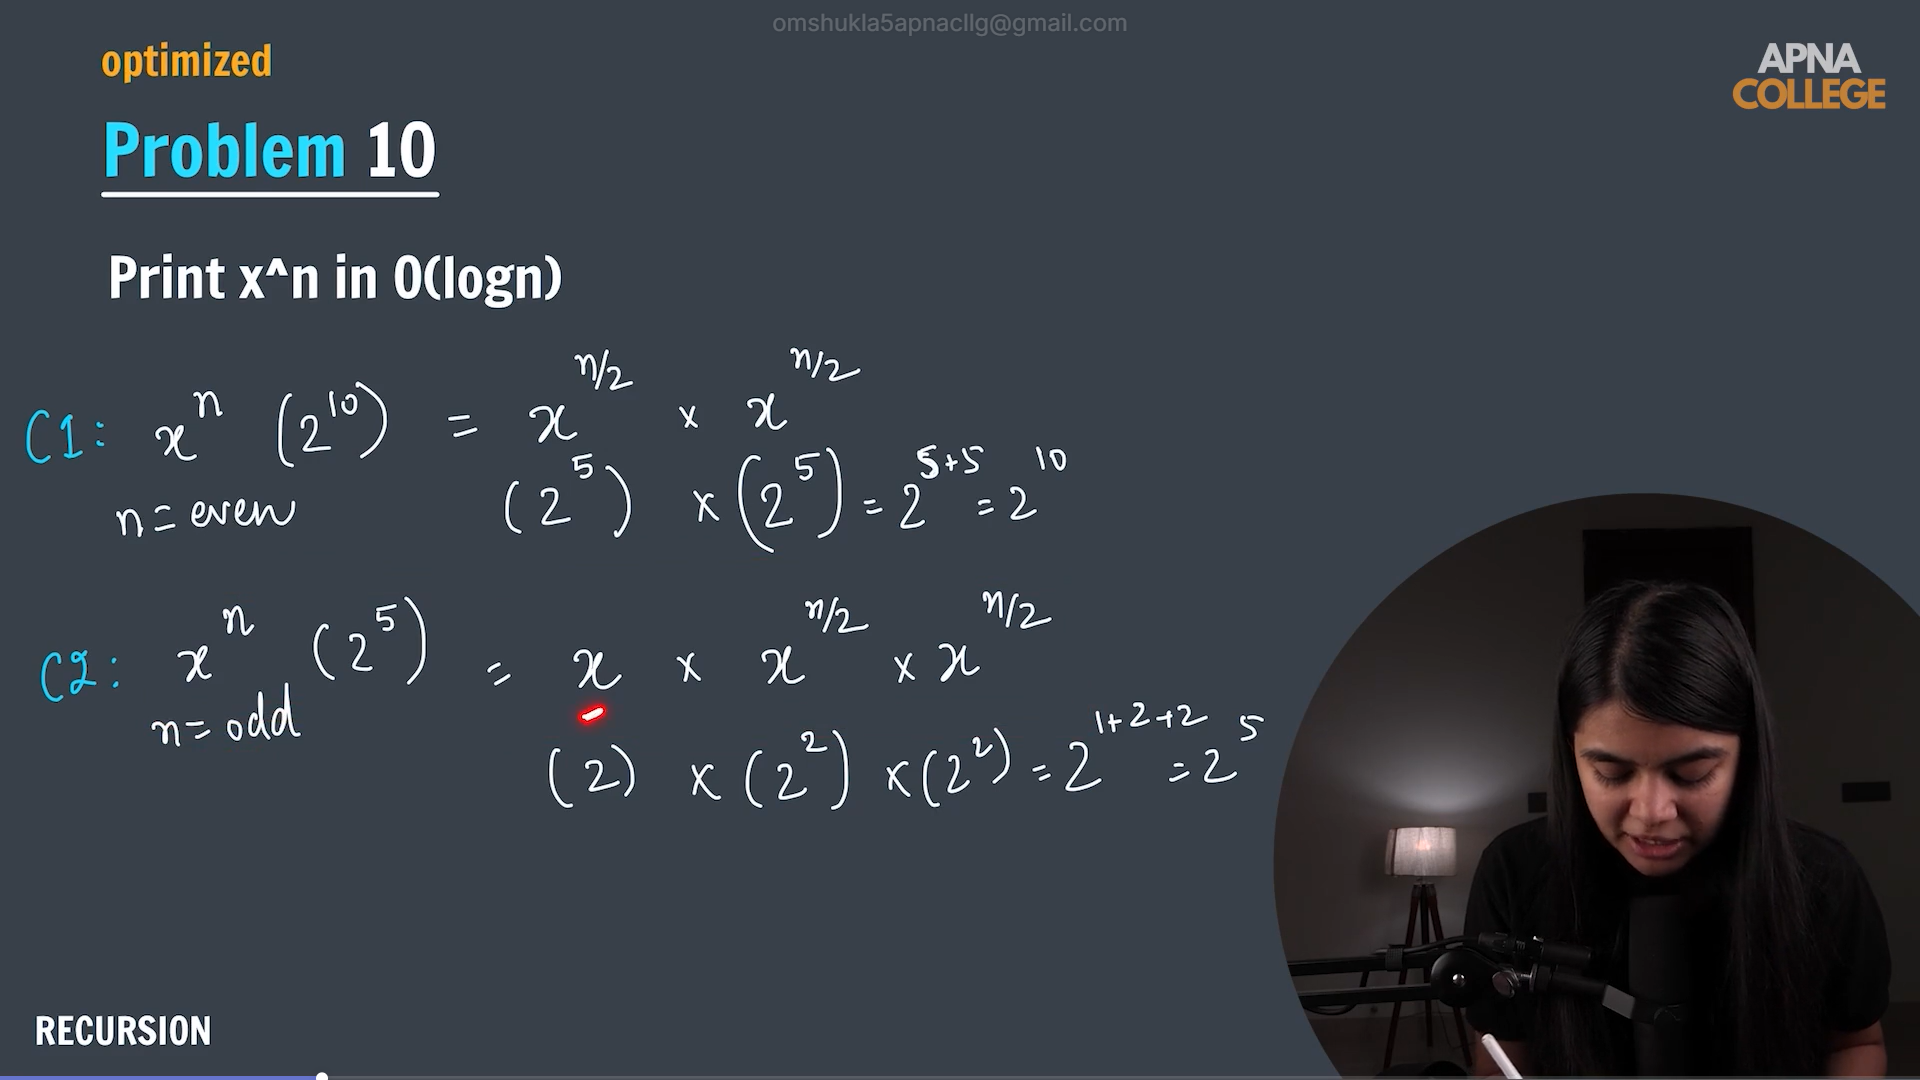 omshukla5apnacllg@gmail.com
optimized
APNA
COLLEGE
Problem 10
Print x^n in O(logn)
C1: x^n (2^10) = x^n/2 × x^n/2
n = even (2^5) × (2^5) = 2^5+5 = 2^10
C2: x^n (2^5) = x × x^n/2 × x^n/2
n = odd (2) × (2^2) × (2^2) = 2^1+2+2 = 2^5
RECURSION